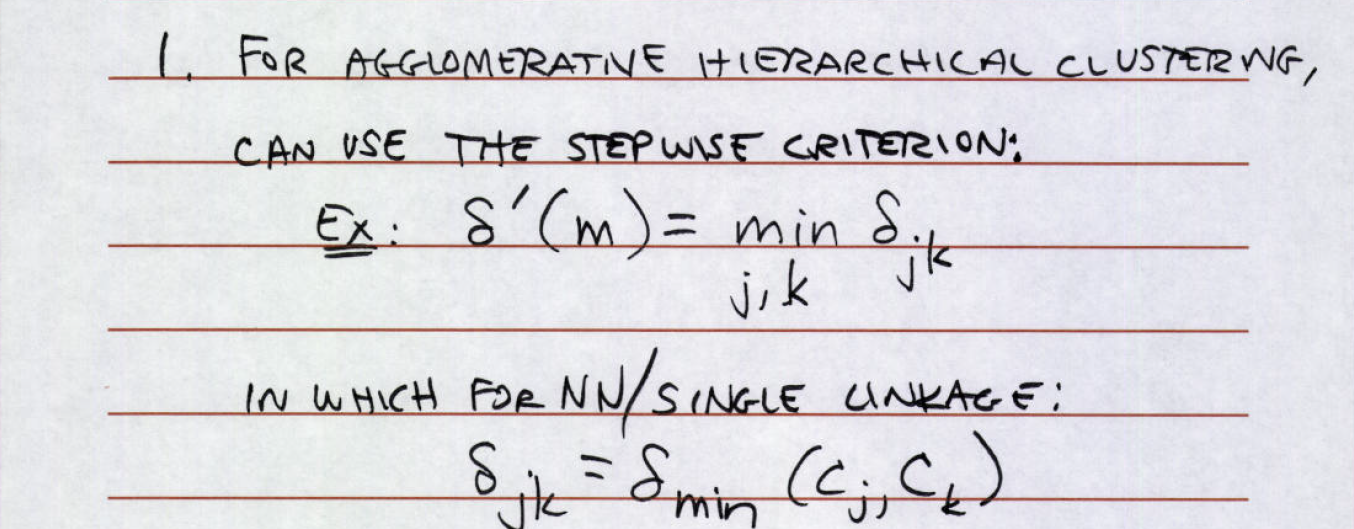 1. FOR AGGLOMERATIVE HIERARCHICAL CLUSTERING,
CAN USE THE STEPWISE CRITERION:
Ex: δ′(m) = min δ_jk
j,k
IN WHICH FOR NN/SINGLE LINKAGE:
δ_jk = δ_min (C_j, C_k)